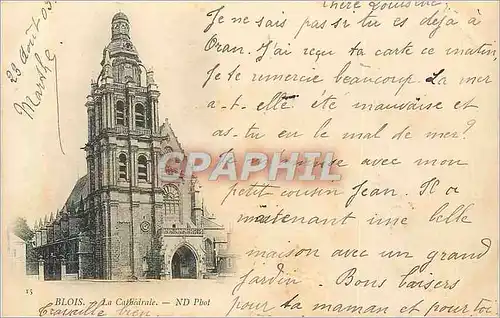 23 Août 03.
Marthe
Chère Louisine,
Je ne sais pas si tu es déjà à
Oran. J'ai reçu ta carte ce matin,
Je te remercie beaucoup. La mer
a-t-elle été mauvaise et
as-tu eu le mal de mer?
Je m'amuse avec mon
petit cousin Jean. Il a
maintenant une belle
maison avec un grand
jardin. Bons baisers
pour ta maman et pour toi
Travaille bien.
CPARHIL
.COM
15
BLOIS. La Cathédrale. — ND Phot